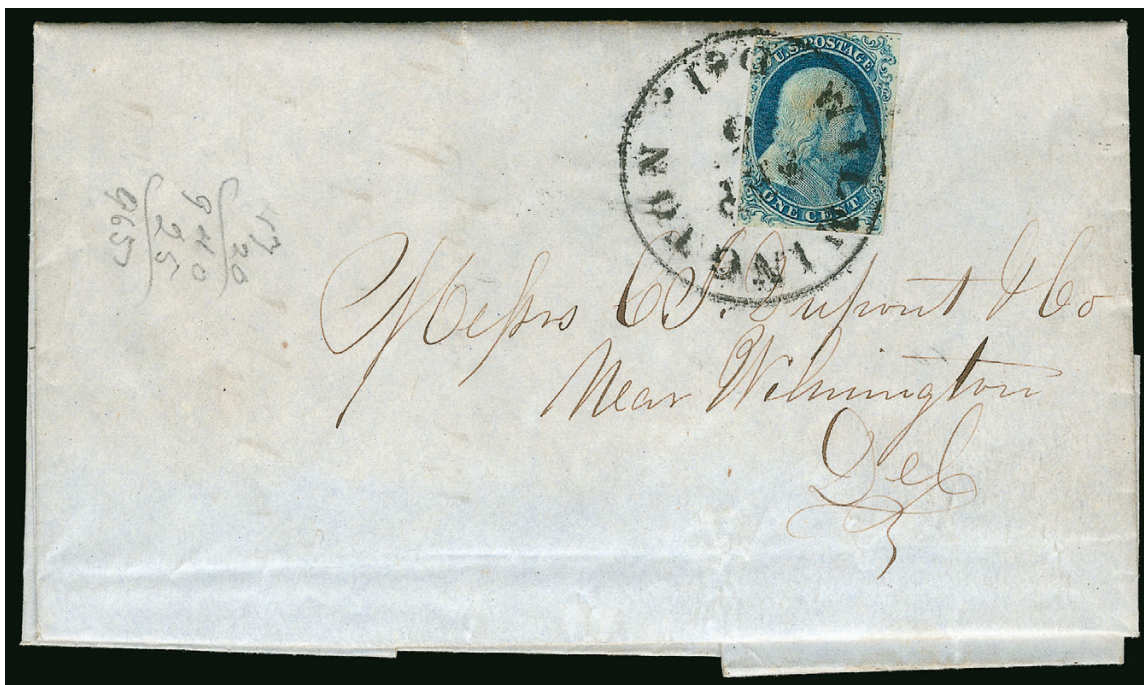 U.S. POSTAGE
ONE CENT
WILMINGTON
Messrs EI Dupont & Co
Near Wilmington
Del